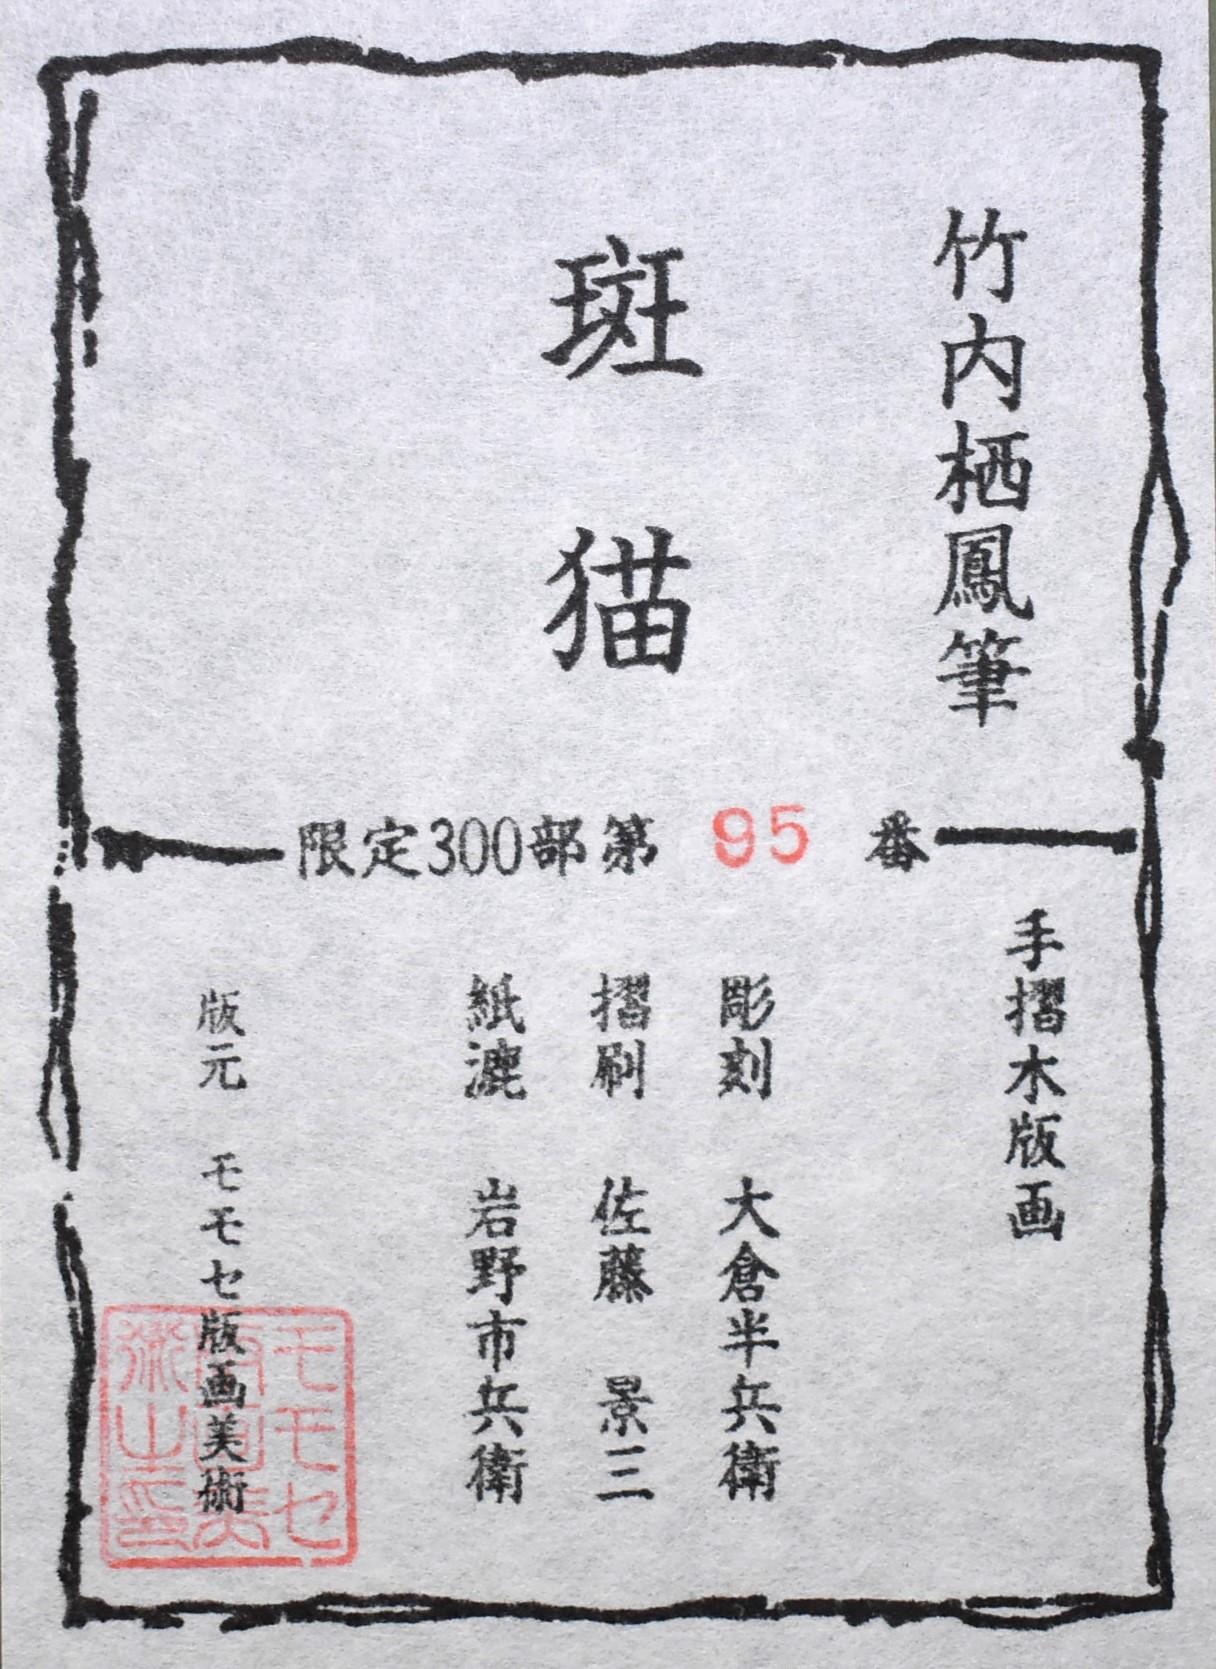 竹内栖鳳筆
斑猫
限定300部第 95 番
手摺木版画
彫刻 大倉半兵衛
摺刷 佐藤 景三
紙漉 岩野市兵衛
版元 モモセ版画美術
モモセ
版画美
術之印